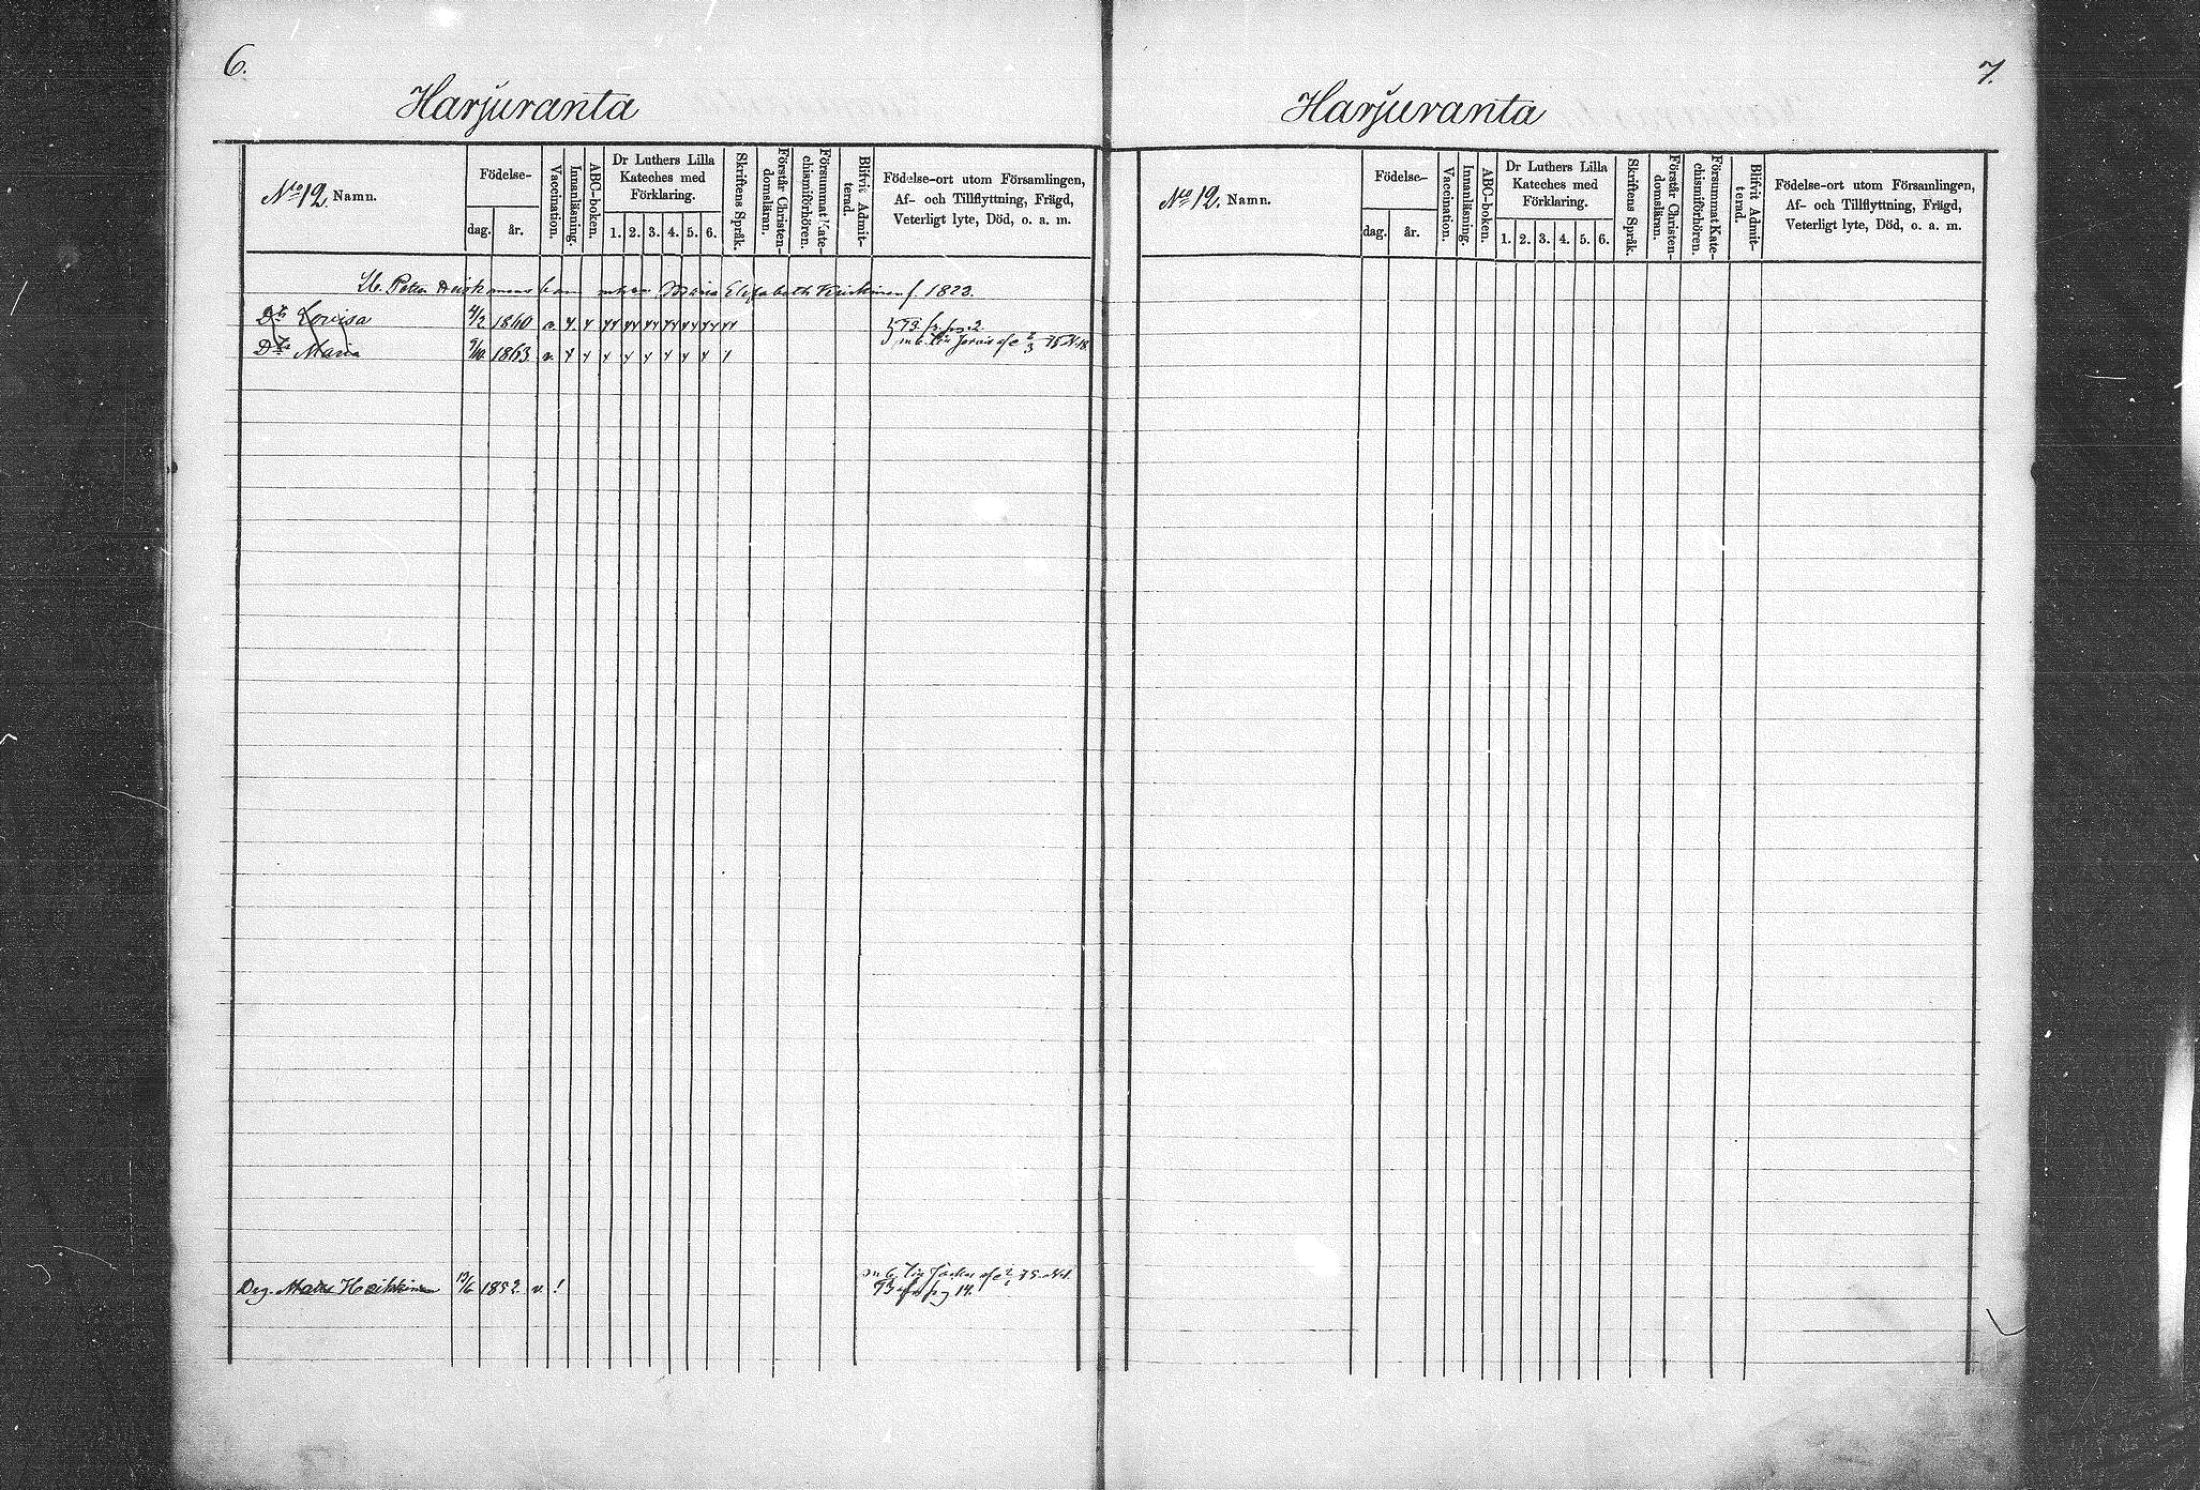 6.
Harjuranta
No 12. Namn.
Födelse-
dag. år.
Vaccination.
Innanläsning.
ABC-boken.
Dr Luthers Lilla
Kateches med
Förklaring.
1. 2. 3. 4. 5. 6.
Skriftens Språk.
Förstår Christen-
domsläran.
Försummat Kate-
chismiförhören.
Blifvit Admit-
terad.
Födelse-ort utom Församlingen,
Af- och Tillflyttning, Frägd,
Veterligt lyte, Död, o. a. m.
Peter barn Maria Elisabeth f. 1823.
Dr Lovisa 4/2 1860 v.
Dr Maria 9/10 1863 v.
Drg. Heikkinen 13/6 1852 v. !
14.
7.
Harjuranta
No 12. Namn.
Födelse-
dag. år.
Vaccination.
Innanläsning.
ABC-boken.
Dr Luthers Lilla
Kateches med
Förklaring.
1. 2. 3. 4. 5. 6.
Skriftens Språk.
Förstår Christen-
domsläran.
Försummat Kate-
chismiförhören.
Blifvit Admit-
terad.
Födelse-ort utom Församlingen,
Af- och Tillflyttning, Frägd,
Veterligt lyte, Död, o. a. m.